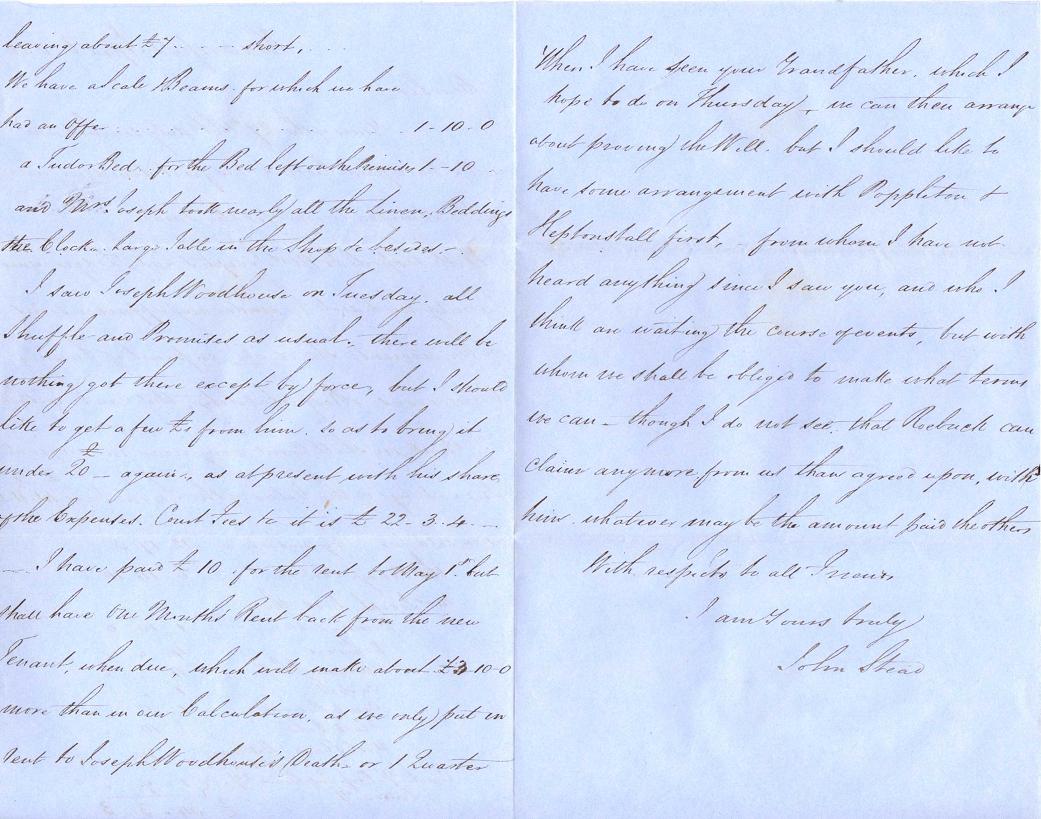 leaving about £7 - - - short,
We have a Scale & Beams for which we have
had an Offer - - - 1-10-0
a Tudor Bed for the Bed left on the Premises 1--10
and Mrs. Joseph took nearly all the Linen, Bedding,
the Clock, Large Table in the Shop &c besides -
I saw Joseph Woodhouse on Tuesday. all
Shuffle and Promises as usual. there will be
nothing got there except by force, but I should
like to get a few £s from him. so as to bring it
under £20 - again, as at present with his share
of the Expenses. Court Fees &c it is £22-3-4-
- I have paid £10 for the rent to May 1st. but
shall have One Month's Rent back from the new
Tenant, when due, which will make about £3 10-0
more than in our Calculation, as we only put in
rent to Joseph Woodhouse's Death - or 1 Quarter
When I have seen your Grandfather, which I
hope to do on Thursday, we can then arrange
about proving the Will. but I should like to
have some arrangement with Poppleton &
Heptonstall first, - from whom I have not
heard anything since I saw you, and who I
think are waiting the course of events, but with
whom we shall be obliged to make what terms
we can - though I do not see, that Roebuck can
claim anymore from us than agreed upon, with
him. whatever may be the amount paid the others
With respects to all Friends
I am Yours truly
John Stead